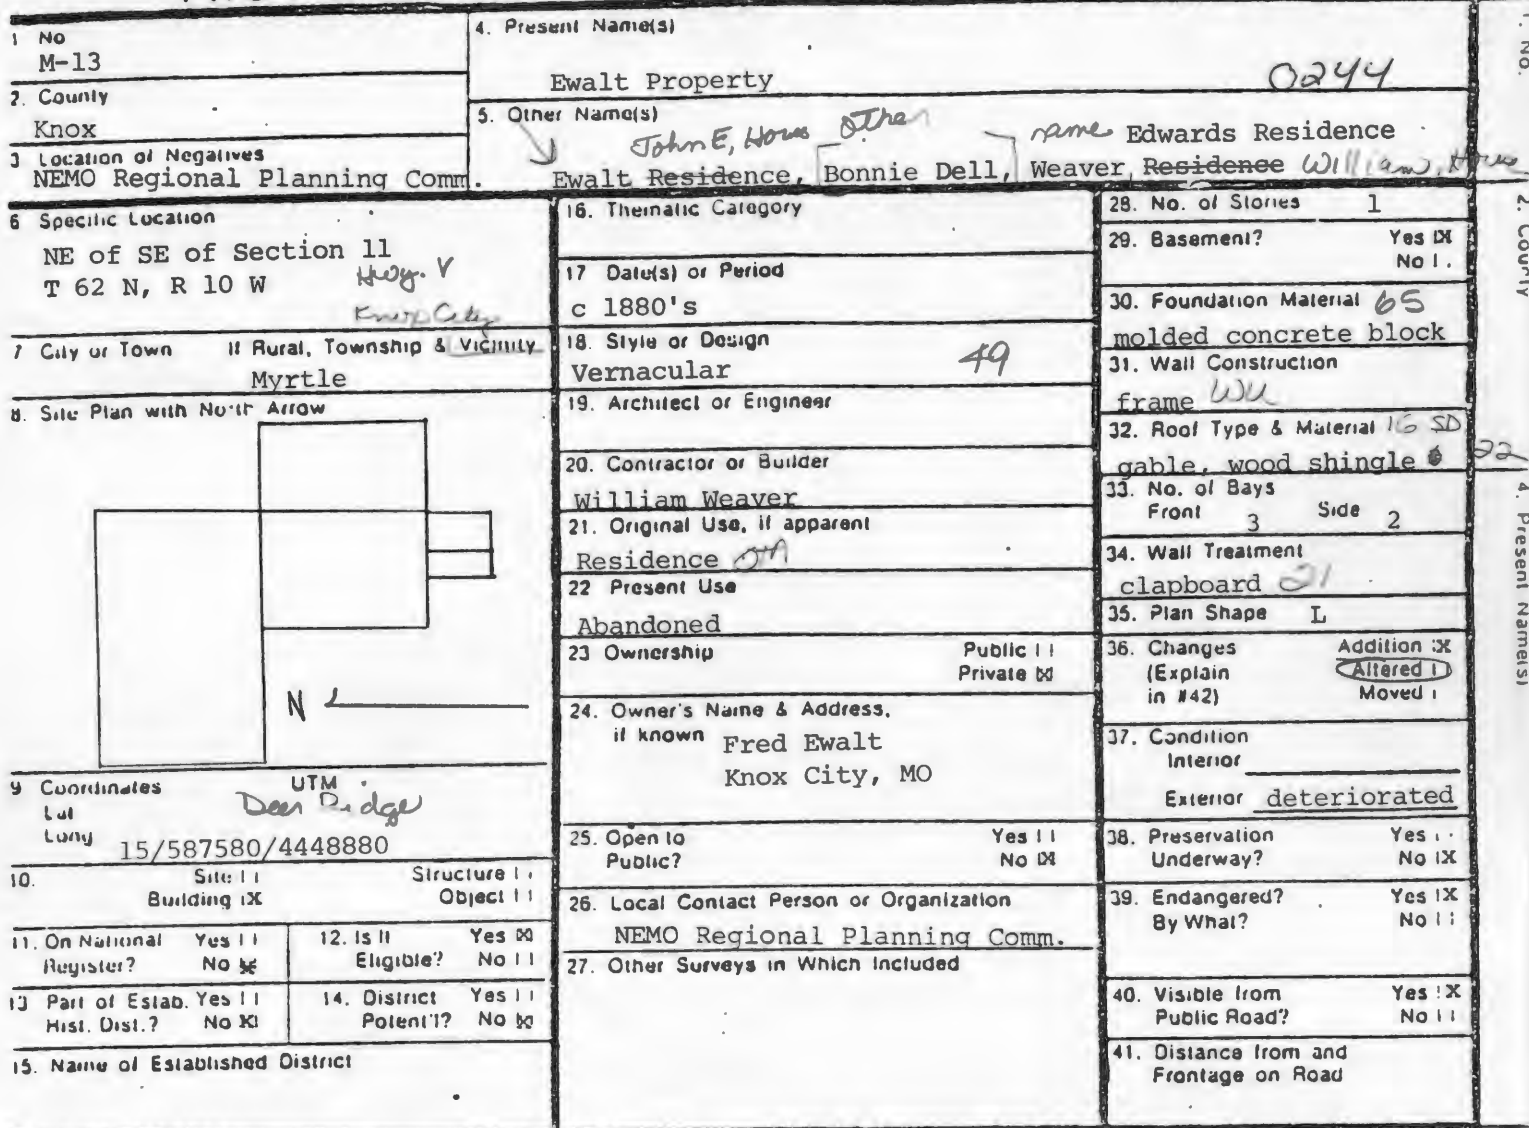 1 No
M-13
2. County
Knox
3 Location of Negatives
NEMO Regional Planning Comm.
4. Present Name(s)
Ewalt Property
0244
5. Other Name(s)
John E, House other name Edwards Residence
Ewalt Residence, Bonnie Dell, Weaver, Residence William, House
6 Specific Location
NE of SE of Section 11
T 62 N, R 10 W Hwy. V
Knox City
7 City or Town If Rural, Township & Vicinity
Myrtle
8. Site Plan with North Arrow
N
9 Coordinates UTM
Lat Deer Ridge
Long
15/587580/4448880
10. Site Structure
Building X Object
11. On National Register? Yes No X
12. Is It Eligible? Yes X No
13 Part of Estab. Hist. Dist.? Yes No X
14. District Potent'l? Yes No X
15. Name of Established District
16. Thematic Category
17 Date(s) or Period
c 1880's
18. Style or Design
Vernacular 49
19. Architect or Engineer
20. Contractor or Builder
William Weaver
21. Original Use, if apparent
Residence
22 Present Use
Abandoned
23 Ownership Public
Private X
24. Owner's Name & Address,
if known Fred Ewalt
Knox City, MO
25. Open to Yes
Public? No X
26. Local Contact Person or Organization
NEMO Regional Planning Comm.
27. Other Surveys in Which Included
28. No. of Stories 1
29. Basement? Yes X
No
30. Foundation Material 65
molded concrete block
31. Wall Construction
frame WU
32. Roof Type & Material 16 SD
gable, wood shingle 22
33. No. of Bays
Front 3 Side 2
34. Wall Treatment
clapboard 21
35. Plan Shape L
36. Changes Addition X
(Explain Altered
in #42) Moved
37. Condition
Interior
Exterior deteriorated
38. Preservation Yes
Underway? No X
39. Endangered? Yes X
By What? No
40. Visible from Yes X
Public Road? No
41. Distance from and
Frontage on Road
1. No.
2. County
4. Present Name(s)